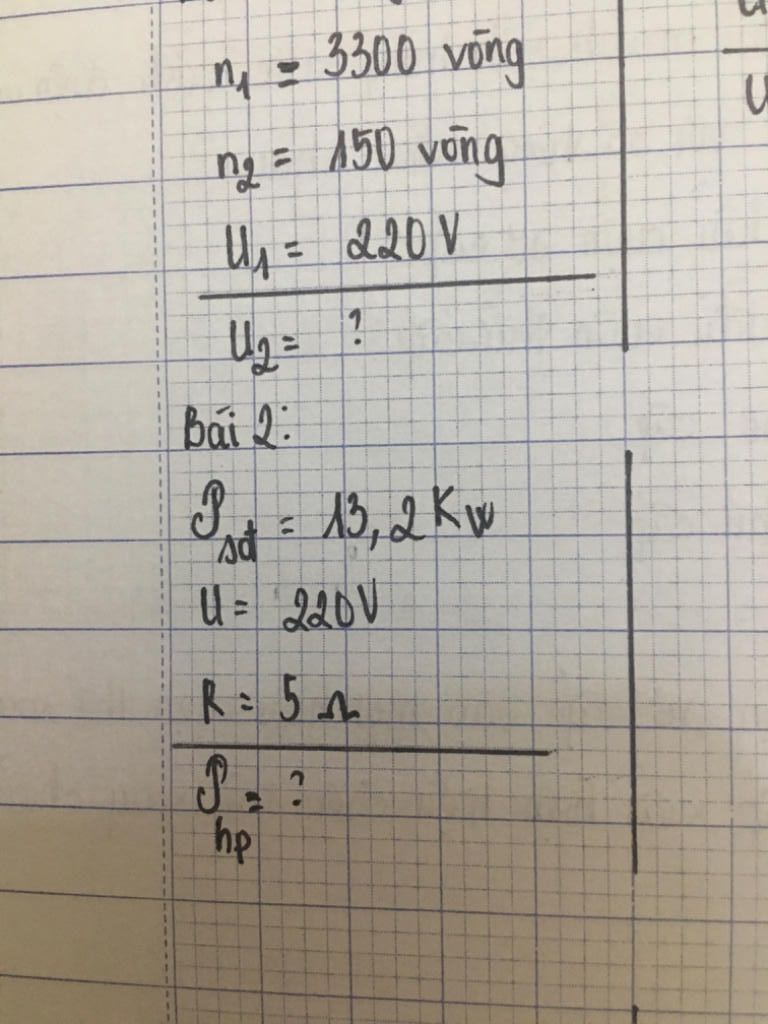 n1 = 3300 vōng
n2 = 150 vōng
U1 = 220 V
U2 = ?
Bái 2:
P sd = 13,2 Kw
U = 220V
R = 5 Ω
P hp = ?